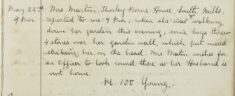 May 22nd Mrs Martin, Thorley Bourne House, South Mills
9 P.m. reported to me 9 P.m., when she was walking
down her garden this evening, some boys threw
4 stones over her garden wall, which just missed
striking her on the head. Mrs Martin wishes for
an Officer to look round there as her Husband is
not home.
P.C. 100 Young.